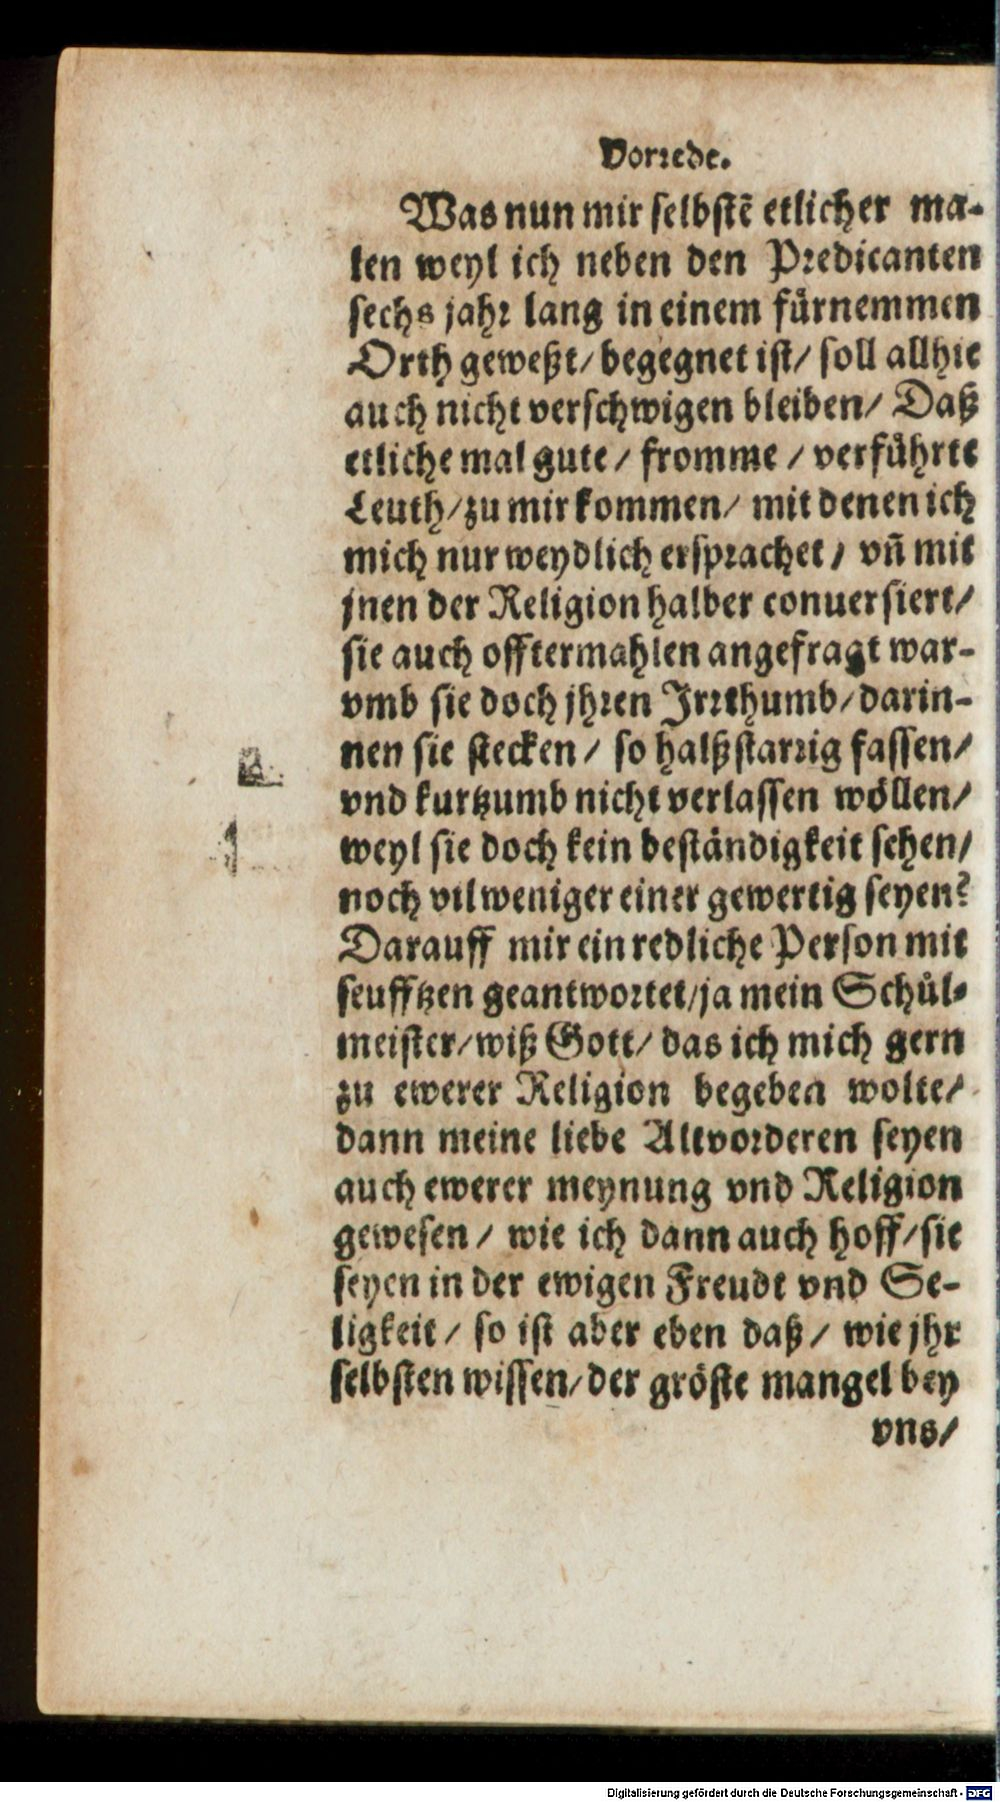 Vorrede.
Was nun mir selbstē etlicher ma-
len weyl ich neben den Predicanten
sechs jahr lang in einem fürnemmen
Orth geweßt/ begegnet ist/ soll allhie
auch nicht verschwigen bleiben/ Daß
etliche mal gute / fromme / verführte
Leuth/ zu mir kommen/ mit denen ich
mich nur weydlich ersprachet / vñ mit
jnen der Religion halber conuersiert/
sie auch offtermahlen angefragt war-
vmb sie doch jhren Irrthumb/ darin-
nen sie stecken / so halßstarrig fassen/
vnd kurtzumb nicht verlassen wöllen/
weyl sie doch kein beständigkeit sehen/
noch vil weniger einer gewertig seyen?
Darauff mir ein redliche Person mit
seufftzen geantwortet/ ja mein Schůl-
meister/ wiß Gott/ das ich mich gern
zu ewerer Religion begeben wolte/
dann meine liebe Altvorderen seyen
auch ewerer meynung vnd Religion
gewesen / wie ich dann auch hoff/ sie
seyen in der ewigen Freudt vnd Se-
ligkeit / so ist aber eben daß / wie jhr
selbsten wissen/ der gröste mangel bey
vns/
Digitalisierung gefördert durch die Deutsche Forschungsgemeinschaft - DFG